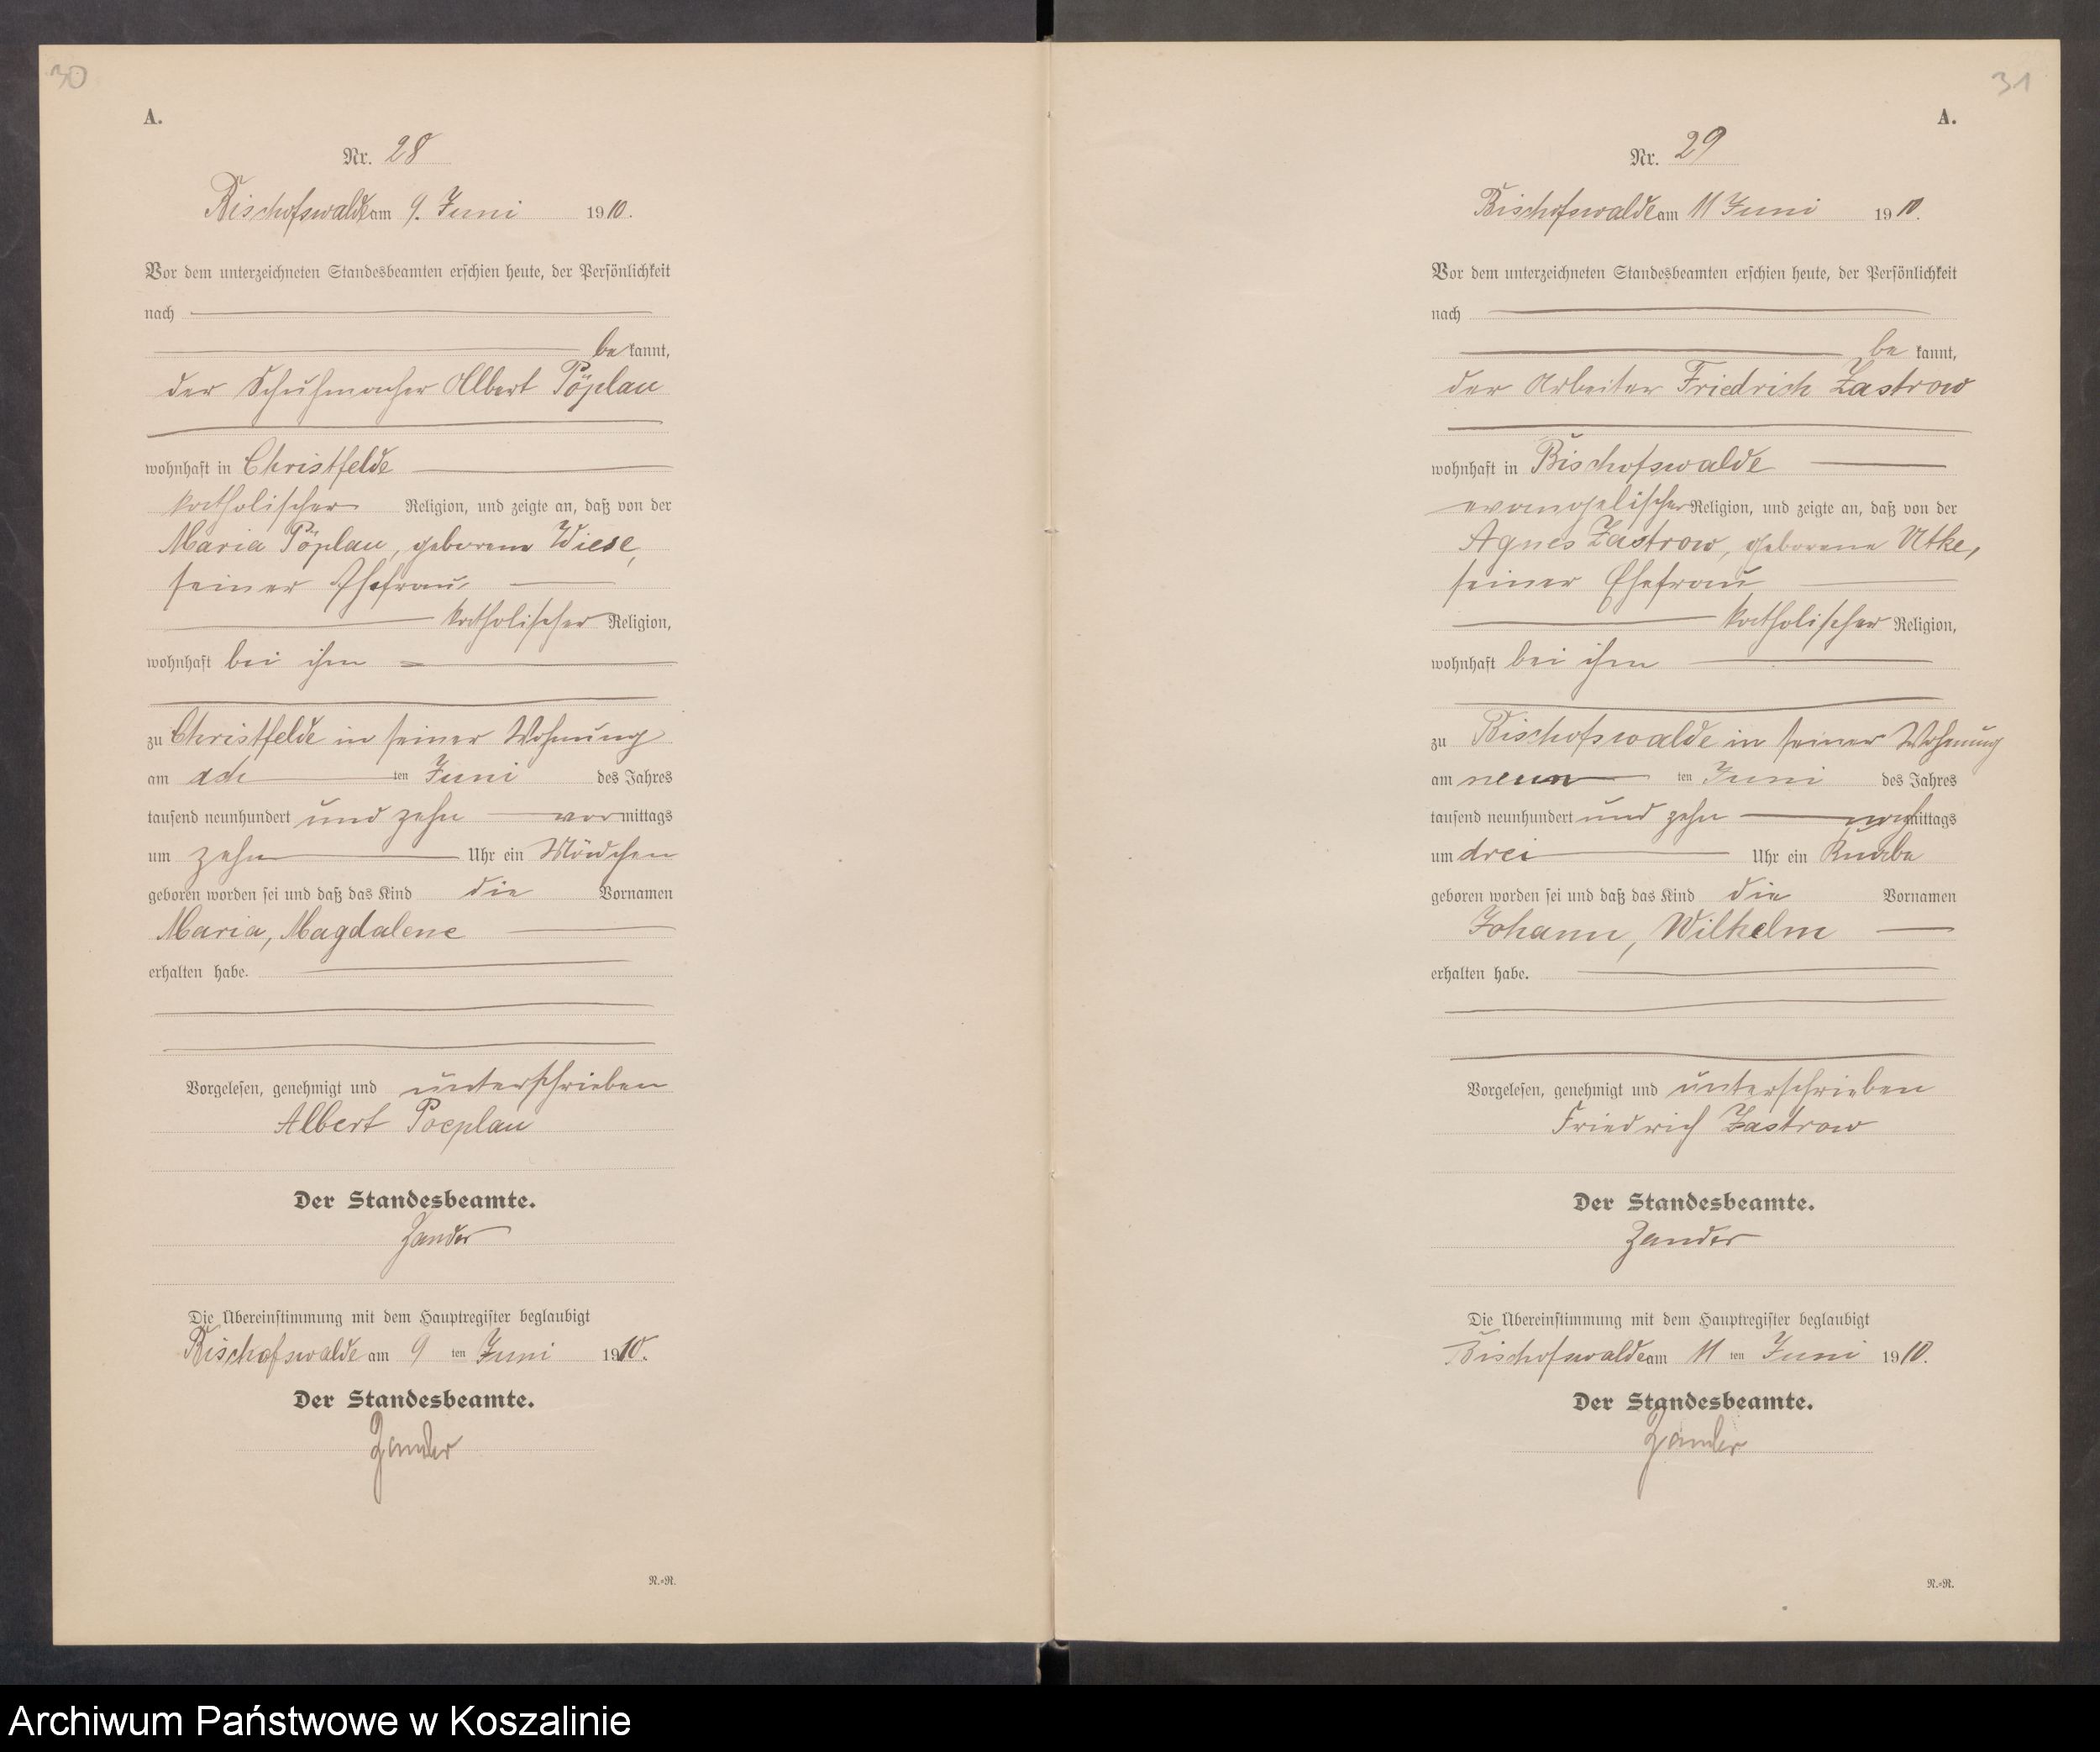 30
A.
Nr. 28
Bischofswalde am 9. Juni 1910.
Vor dem unterzeichneten Standesbeamten erschien heute, der Persönlichkeit
nach
be kannt,
der Schuhmacher Albert Pöplau
wohnhaft in Christfelde
katholischer Religion, und zeigte an, daß von der
Maria Pöplau, geborene Wiese,
seiner Ehefrau,
katholischer Religion,
wohnhaft bei ihm
zu Christfelde in seiner Wohnung
am ach ten Juni des Jahres
tausend neunhundert und zehn vor mittags
um zehn Uhr ein Mädchen
geboren worden sei und daß das Kind die Vornamen
Maria, Magdalene
erhalten habe.
Vorgelesen, genehmigt und unterschrieben
Albert Poeplau
Der Standesbeamte.
Zander
Die Übereinstimmung mit dem Hauptregister beglaubigt
Bischofswalde am 9 ten Juni 1910.
Der Standesbeamte.
Zander
N.=R.
31
A.
Nr. 29
Bischofswalde am 11 Juni 1910.
Vor dem unterzeichneten Standesbeamten erschien heute, der Persönlichkeit
nach
be kannt,
der Arbeiter Friedrich Zastrow
wohnhaft in Bischofswalde
evangelischer Religion, und zeigte an, daß von der
Agnes Zastrow, geborene Utke,
seiner Ehefrau
katholischer Religion,
wohnhaft bei ihm
zu Bischofswalde in seiner Wohnung
am neun ten Juni des Jahres
tausend neunhundert und zehn nach mittags
um drei Uhr ein Knabe
geboren worden sei und daß das Kind die Vornamen
Johann, Wilhelm
erhalten habe.
Vorgelesen, genehmigt und unterschrieben
Friedrich Zastrow
Der Standesbeamte.
Zander
Die Übereinstimmung mit dem Hauptregister beglaubigt
Bischofswalde am 11 ten Juni 1910.
Der Standesbeamte.
Zander
N.=R.
Archiwum Państwowe w Koszalinie